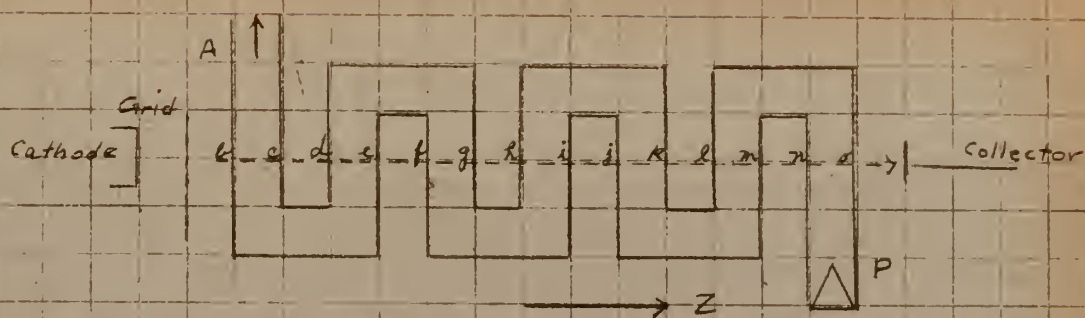 A
Grid
Cathode
b c d e f g h i j k l m n o
Collector
P
Z